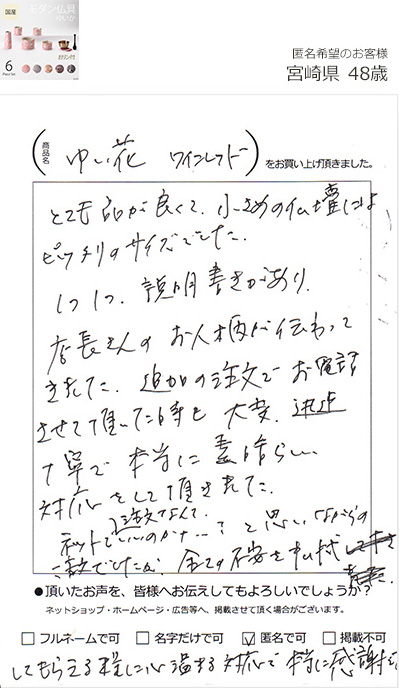 国産
モダン仏具
ゆい花
おリン付
6
匿名希望のお客様
宮崎県 48歳
商品名
(ゆい花 ワインレッド)をお買い上げ頂きました。
とても品が良くて、小さめの仏壇には
ピッタリのサイズでした。
1つ1つ、説明書きがあり、
店長さんのお人柄が伝わって
きました。追加の注文でお電話
させて頂いた時も大変、迅速
丁寧で本当に素晴らしい
対応をして頂きました。
注文なんて、
ネットでいいのかナ…?と思いながらの
注文でしたが、全ての不安を払拭
●頂いたお声を、皆様へお伝えしてもよろしいでしょうか?
ネットショップ・ホームページ・広告等へ、掲載させて頂く場合がございます。
□フルネームで可 □名字だけで可 ☑匿名で可 □掲載不可
してもらえる程に心温まる対応で本当に感謝です